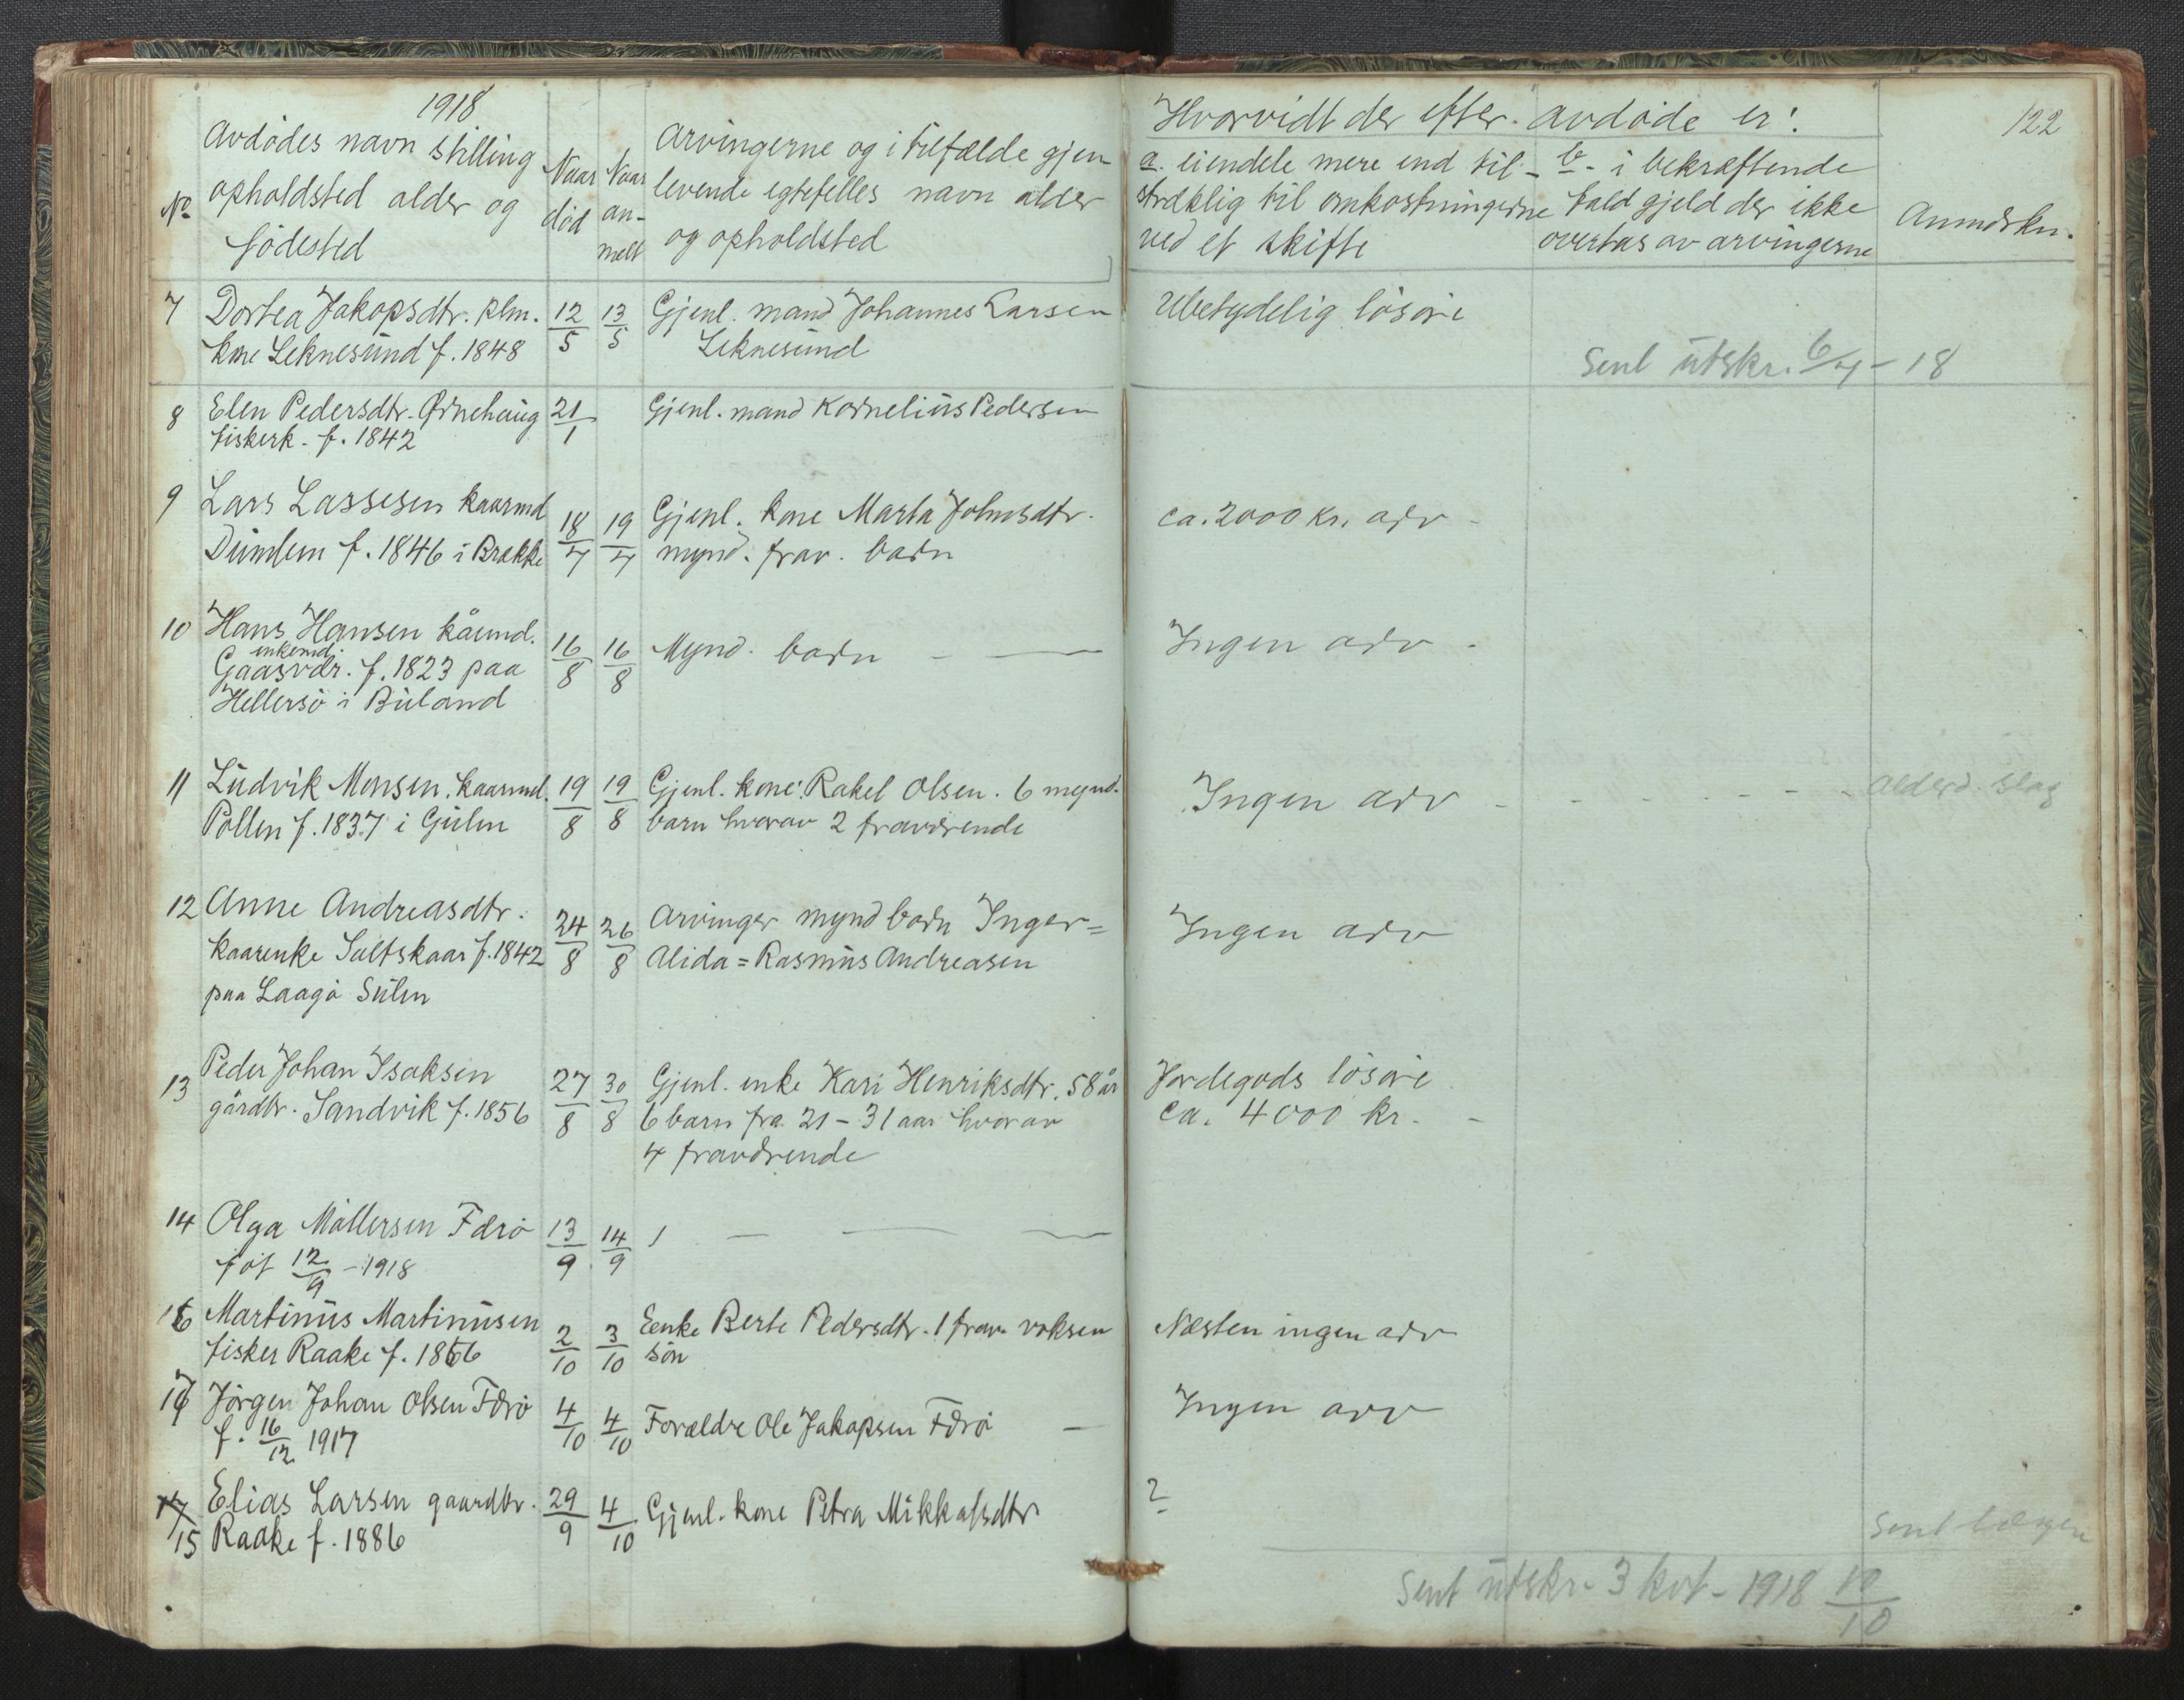 1918
No
Avdødes navn stilling
opholdsted alder og
fødested
Naar
død
Naar
an-
melt
Arvingerne og i tilfælde gjen
levende egtefelles navn alder
og opholdsted
Hvorvidt der efter avdøde er:
122
a. eiendele mere end til-
stræklig til omkostningerne
ved et skifte
b - i bekræftende
fald gjeld der ikke
overtas av arvingerne
Anmærkn.
7 Dortea Jakopsdtr. plm. 12/5 13/5 Gjenl. mand Johannes Larsen Ubetydelig løsøre
kone Leknesund f. 1848 Leknesund
Sent utskr. 6/7 - 18
8 Elen Pedersdtr. Ørnehaug 21/1 Gjenl. mand Kornelius Pedersen
fiskerk. f. 1842
9 Lars Lassesen kaarmd 18/7 19/7 Gjenl. kone Marta Johnsdtr. ca. 2000 kr. arv -
f. 1846 i Brække mynd. frav. barn
10 Hans Hansen kårmd. 16/8 16/8 Mynd. barn - — Ingen arv -
enkemd.
Gaasvær. f. 1823 paa
Hellersø i Buland
11 Ludvik Monsen. kaarmd. 19/8 19/8 Gjenl. kone: Rakel Olsen. 6 mynd. Ingen arv - - - - - - - alderd. slag
Pollen f. 1837 i Gulen barn hvorav 2 fraværende
12 Anne Andreasdtr. 24/8 26/8 Arvinger mynd barn Inger= Ingen arv
kaarenke Saltskaar f. 1842 Alida = Rasmus Andreasen
paa Laagø Sulen
13 Peder Johan Isaksen 27/8 30/8 Gjenl. enke Kari Henriksdtr. 58 år Jordegods løsøre
gårdbr. Sandvik f. 1856 6 barn fra 21 - 31 aar hvorav ca. 4000 kr. -
4 fraværende
14 Olga Møllersen Færø 13/9 14/9 1 — — —
føt 12/9 - 1918
16 Martinus Martinusen 2/10 3/10 Eenke Berte Pedersdtr. 1 frav. voksen Næsten ingen arv
fisker Raake f. 1866 søn
17 Jørgen Johan Olsen Færø 4/10 4/10 Forældre Ole Jakopsen Færø — Ingen arv
f. 16/12 1917
17 Elias Larsen gaardbr. 29/9 4/10 Gjenl. kone Petra Mikkalsdtr ?
15 Raake f. 1886
Sent lægen
Sent utskr. 3 kvt - 1918 10/10